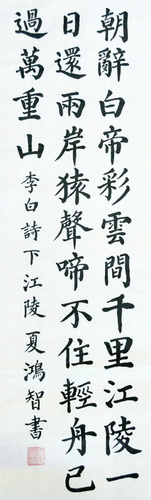 朝辭白帝彩雲間千里江陵一
日還兩岸猿聲啼不住輕舟已
過萬重山 李白詩下江陵 夏鴻智書